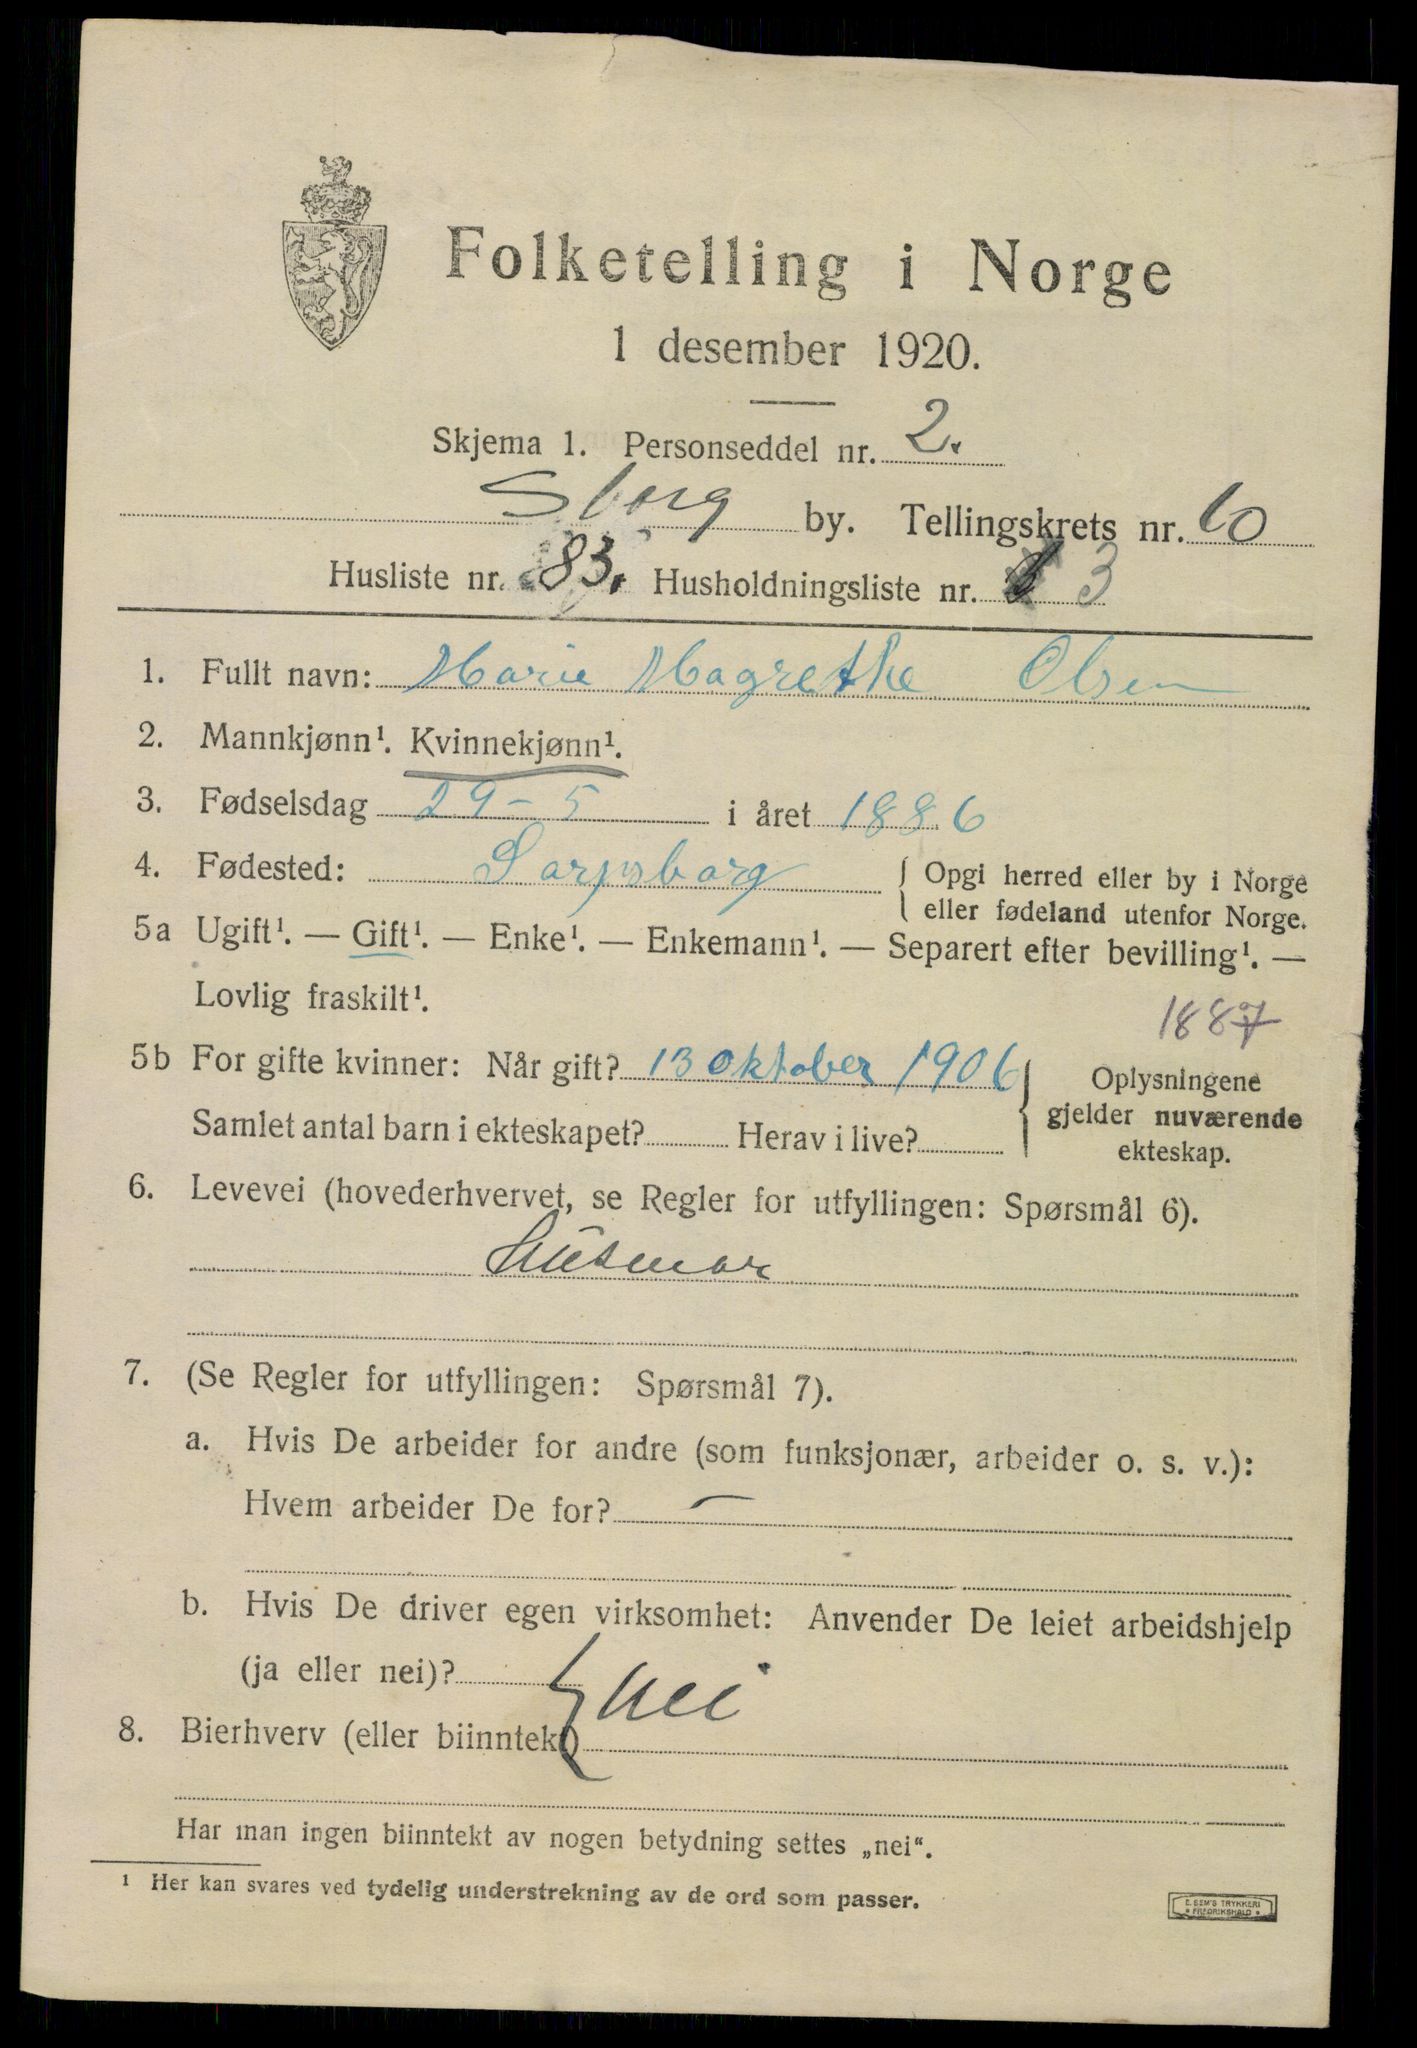 Folketelling i Norge
1 desember 1920.
Skjema 1. Personseddel nr. 2.
Sborg by. Tellingskrets nr. 10
Husliste nr. 83. Husholdningsliste nr. 3
1. Fullt navn: Marie Magrethe Olsen
2. Mannkjønn¹. Kvinnekjønn¹.
3. Fødselsdag 29-5 i året 1886
4. Fødested: Sarpsborg { Opgi herred eller by i Norge
eller fødeland utenfor Norge.
5a Ugift¹. — Gift¹. — Enke¹. — Enkemann¹. — Separert efter bevilling¹. —
Lovlig fraskilt¹.
1887
5b For gifte kvinner: Når gift? 13 oktober 1906 { Oplysningene
gjelder nuværende
ekteskap.
Samlet antal barn i ekteskapet? Herav i live?
6. Levevei (hovederhvervet, se Regler for utfyllingen: Spørsmål 6).
Husmor
7. (Se Regler for utfyllingen: Spørsmål 7).
a. Hvis De arbeider for andre (som funksjonær, arbeider o. s. v.):
Hvem arbeider De for? —
b. Hvis De driver egen virksomhet: Anvender De leiet arbeidshjelp
(ja eller nei)?
nei
8. Bierhverv (eller biinntekt)
Har man ingen biinntekt av nogen betydning settes „nei“.
1 Her kan svares ved tydelig understrekning av de ord som passer.
E. SEM'S TRYKKERI
* FREDRIKSHALD *